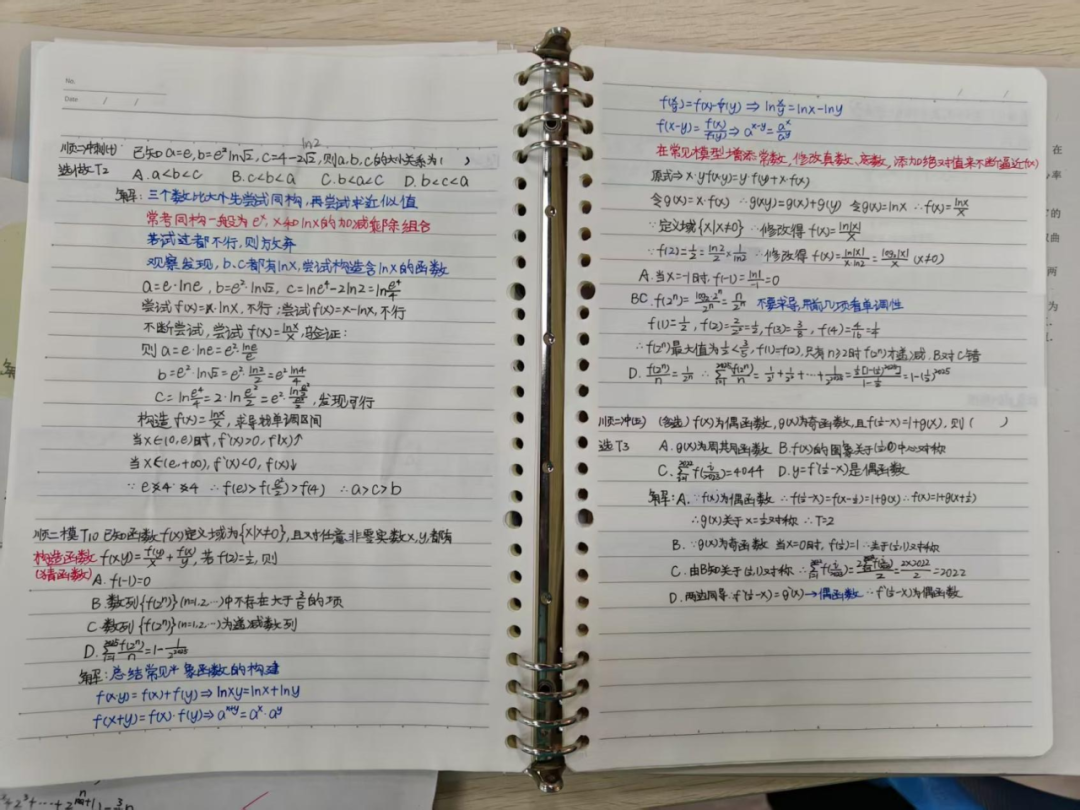 No.
Date / /
ln2
顺二冲刺(十) 已知a=e,b=e²ln√2,c=4-2√2,则a,b,c的大小关系为( )
选填T2 A.a<b<c B.c<b<a C.b<a<c D.b<c<a
解:三个数比大小先尝试同构,再尝试求近似值
常考同构一般为eˣ,x和lnx的加减乘除组合
若试过都不行,则放弃
观察发现,b、c都有lnx,尝试构造含lnx的函数
a=e·lne,b=e²·ln√2,c=lne⁴-2ln2=ln e⁴/4
尝试f(x)=x·lnx,不行;尝试f(x)=x-lnx,不行
不断尝试,尝试f(x)=lnx/x,验证:
则a=e·lne=e²·lne/e
b=e²·ln√2=e²·ln2/2=e²·ln4/4
c=ln e⁴/4=2·ln e²/2=e²·ln(e²/2)/(e²/2),发现可行
构造f(x)=lnx/x,求导称单调区间
当x∈(0,e)时,f'(x)>0,f(x)↑
当x∈(e,+∞),f'(x)<0,f(x)↓
∵ e 4 4 ∴f(e)>f(e²/2)>f(4) ∴a>c>b
顺二模T10 已知函数f(x)定义域为{x|x≠0},且对任意非零实数x,y,都有
构造函数 f(xy)=f(y)/x+f(x)/y,若f(2)=1/2,则
(猜函数) A.f(-1)=0
B.数列{f(2ⁿ)}(n=1,2,…)中不存在大于3/5的项
C.数列{f(2ⁿ)}(n=1,2,…)为递减数列
D. Σf(2ⁿ)/n=1-1/2²⁰²⁵
解:总结常见 象函数的构建
f(x·y)=f(x)+f(y)⇒lnxy=lnx+lny
f(x+y)=f(x)·f(y)⇒aˣ⁺ʸ=aˣ·aʸ
f(x/y)=f(x)-f(y)⇒ln x/y=lnx-lny
f(x-y)=f(x)/f(y)⇒aˣ⁻ʸ=aˣ/aʸ
在常见模型增添常数,修改真数、底数,添加绝对值来不断逼近f(x)
原式⇒x·yf(x·y)=y·f(y)+x·f(x)
令g(x)=x·f(x) ∴g(xy)=g(x)+g(y) 令g(x)=lnx ∴f(x)=lnx/x
∵定义域{x|x≠0} ∴修改得f(x)=ln|x|/x
∵f(2)=1/2=ln2/2×1/ln2 ∴修改得 f(x)=ln|x|/(x·ln2)=log₂|x|/x (x≠0)
A.当x=-1时,f(-1)=ln1/-1=0
BC.f(2ⁿ)=log₂2ⁿ/2ⁿ=n/2ⁿ 不要求导,用前几项看单调性
f(1)=1/2,f(2)=2/2²=1/2,f(3)=3/8,f(4)=4/16=1/4
∴f(2ⁿ)最大值为1/2<3/5,f(1)=f(2),只有n≥2时f(2ⁿ)才递减,B对C错
D. f(2ⁿ)/n=1/2ⁿ ∴Σf(2ⁿ)/n=1/2¹+1/2²+…+1/2²⁰²⁵=1/2[1-(1/2)²⁰²⁵]/(1-1/2)=1-(1/2)²⁰²⁵
顺二冲(五) (多选) f(x)为偶函数,g(x)为奇函数,且f(1/2-x)=1+g(x),则( )
选T3 A.g(x)为周其月函数 B.f(x)的图象关于(1/2,0)中心对称
C. Σf(i/2023)=4044 D.y=f'(1/2-x)是偶函数
解:A.∵f(x)为偶函数 ∴f(1/2-x)=f(x-1/2)=1+g(x) ∴f(x)=1+g(x+1/2)
∴g(x)关于x=1/2对称 ∴T=2
B.∵g(x)为奇函数 当x=0时,f(1/2)=1 ∴关于(1/2,1)对称
C.由B知关于(1/2,1)对称 ∴Σf(i/2023)=2Σf(i/2023)/2=2×2022/2=2022
D.两边同导:f'(1/2-x)=g'(x)→偶函数 ∴f'(1/2-x)为偶函数